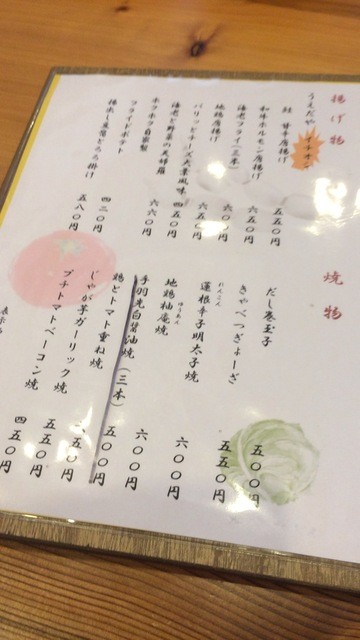 揚げ物
うえだや イチオシ
鮭 甘辛唐揚げ 五五〇円
和牛ホルモン唐揚げ 六五〇円
海老フライ(三本) 六〇〇円
地鶏唐揚げ 六五〇円
パリッとチーズ大葉風味 四五〇円
海老と野菜の天婦羅
ホクホク自家製 六六〇円
フライドポテト 四二〇円
揚出し豆腐とろろ掛け 五八〇円
焼物
だし巻玉子 五〇〇円
きゃべつぎょーざ 五五〇円
蓮根辛子明太子焼 れんこん
地鶏柚庵焼 ゆうあん 六〇〇円
手羽先白醤油焼(三本) 六〇〇円
鶏とトマト重ね焼 五〇〇円
じゃが芋ガーリック焼 五〇円
プチトマトベーコン焼 五五〇円
四五〇円